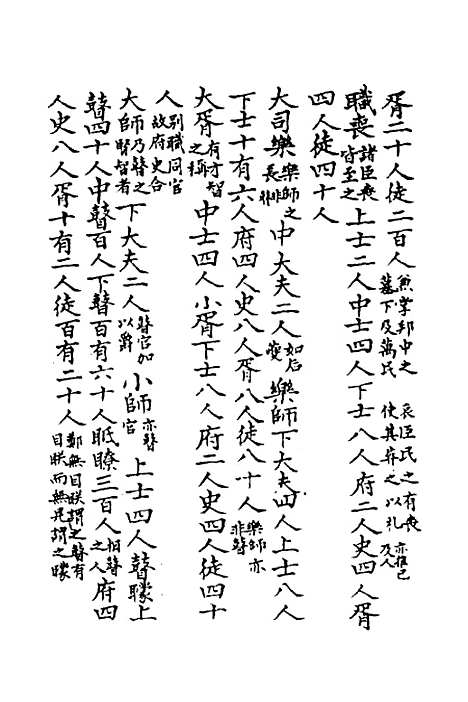 胥二十人徒二百人兼掌邦中之墓下及萬民哀臣民之有喪使其葬之以礼亦推己及人
職喪諸臣喪皆至之上士二人中士四人下士八人府二人史四人胥
四人徒四十人
大司樂樂師之長非中大夫二人如后夔樂師下大夫四人上士八人
下士十有六人府四人史八人胥八人徒八十人樂師亦非瞽
大胥有才智之稱中士四人小胥下士八人府二人史四人徒四十
人別職同官故府史合
大師乃瞽之賢智者下大夫二人瞽官加以爵小師亦瞽官上士四人瞽矇上
瞽四十人中瞽百人下瞽百有六十人眡瞭三百人相瞽之人府四
人史八人胥十有二人徒百有二十人鄭無目眹謂之瞽有目眹而無見謂之矇